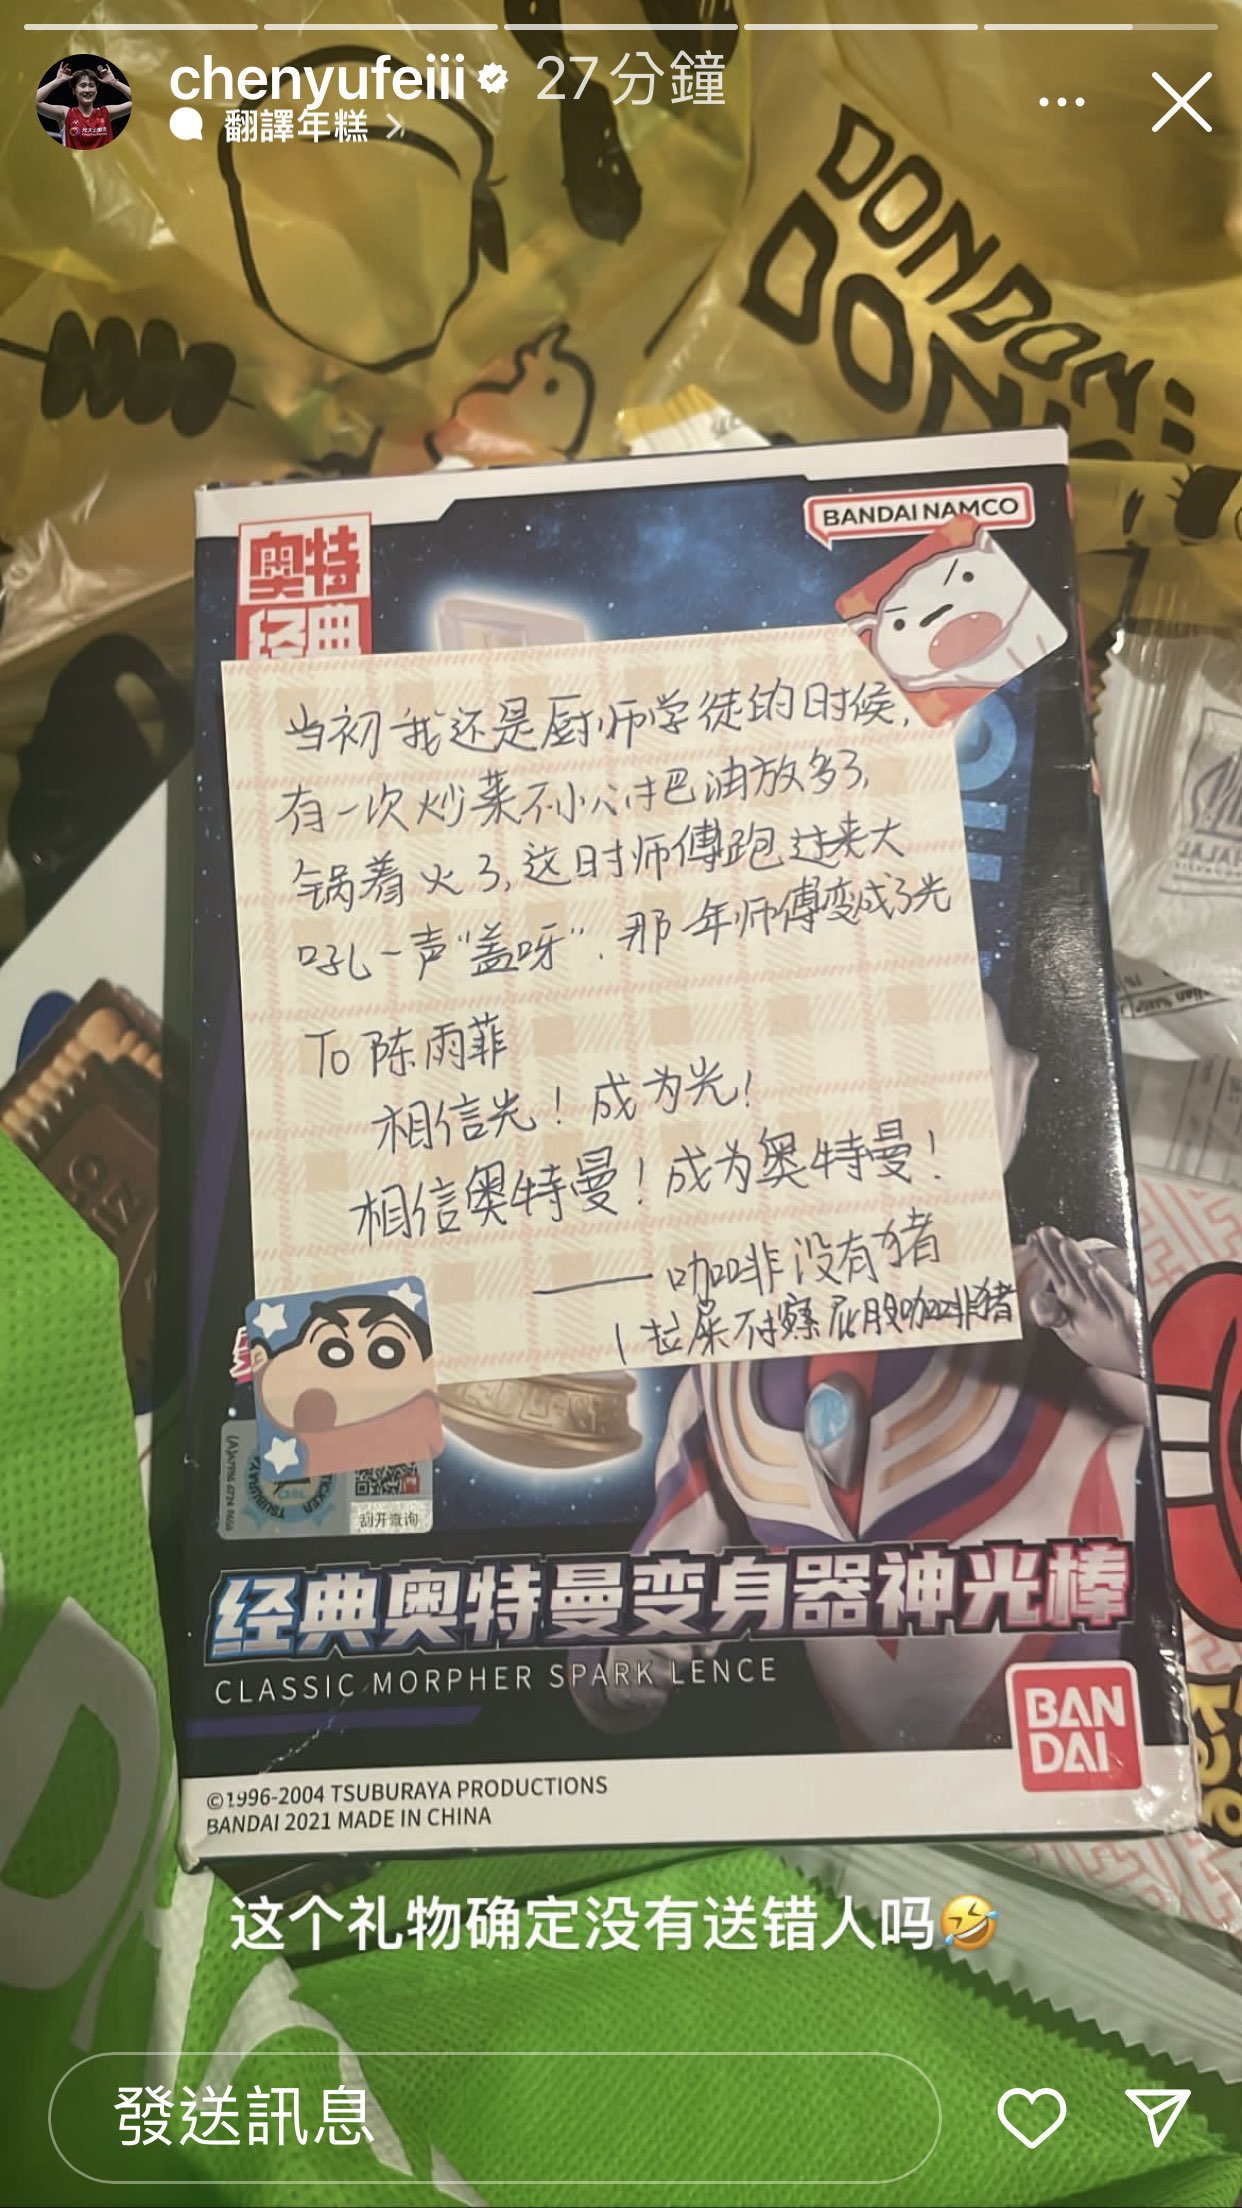 chenyufeiii 27分鐘
翻譯年糕
DONDON:
BANDAI NAMCO
奥特
经典
当初我还是厨师学徒的时候,
有一次炒菜不小心把油放多了,
锅着火了,这时师傅跑过来大
吼一声“盖呀”.那一年师傅变成了光
To 陈雨菲
相信光!成为光!
相信奥特曼!成为奥特曼!
——咖啡没有猪
刮开查询
经典奥特曼变身器神光棒
CLASSIC MORPHER SPARK LENCE
BAN
DAI
©1996-2004 TSUBURAYA PRODUCTIONS
BANDAI 2021 MADE IN CHINA
这个礼物确定没有送错人吗🤣
發送訊息